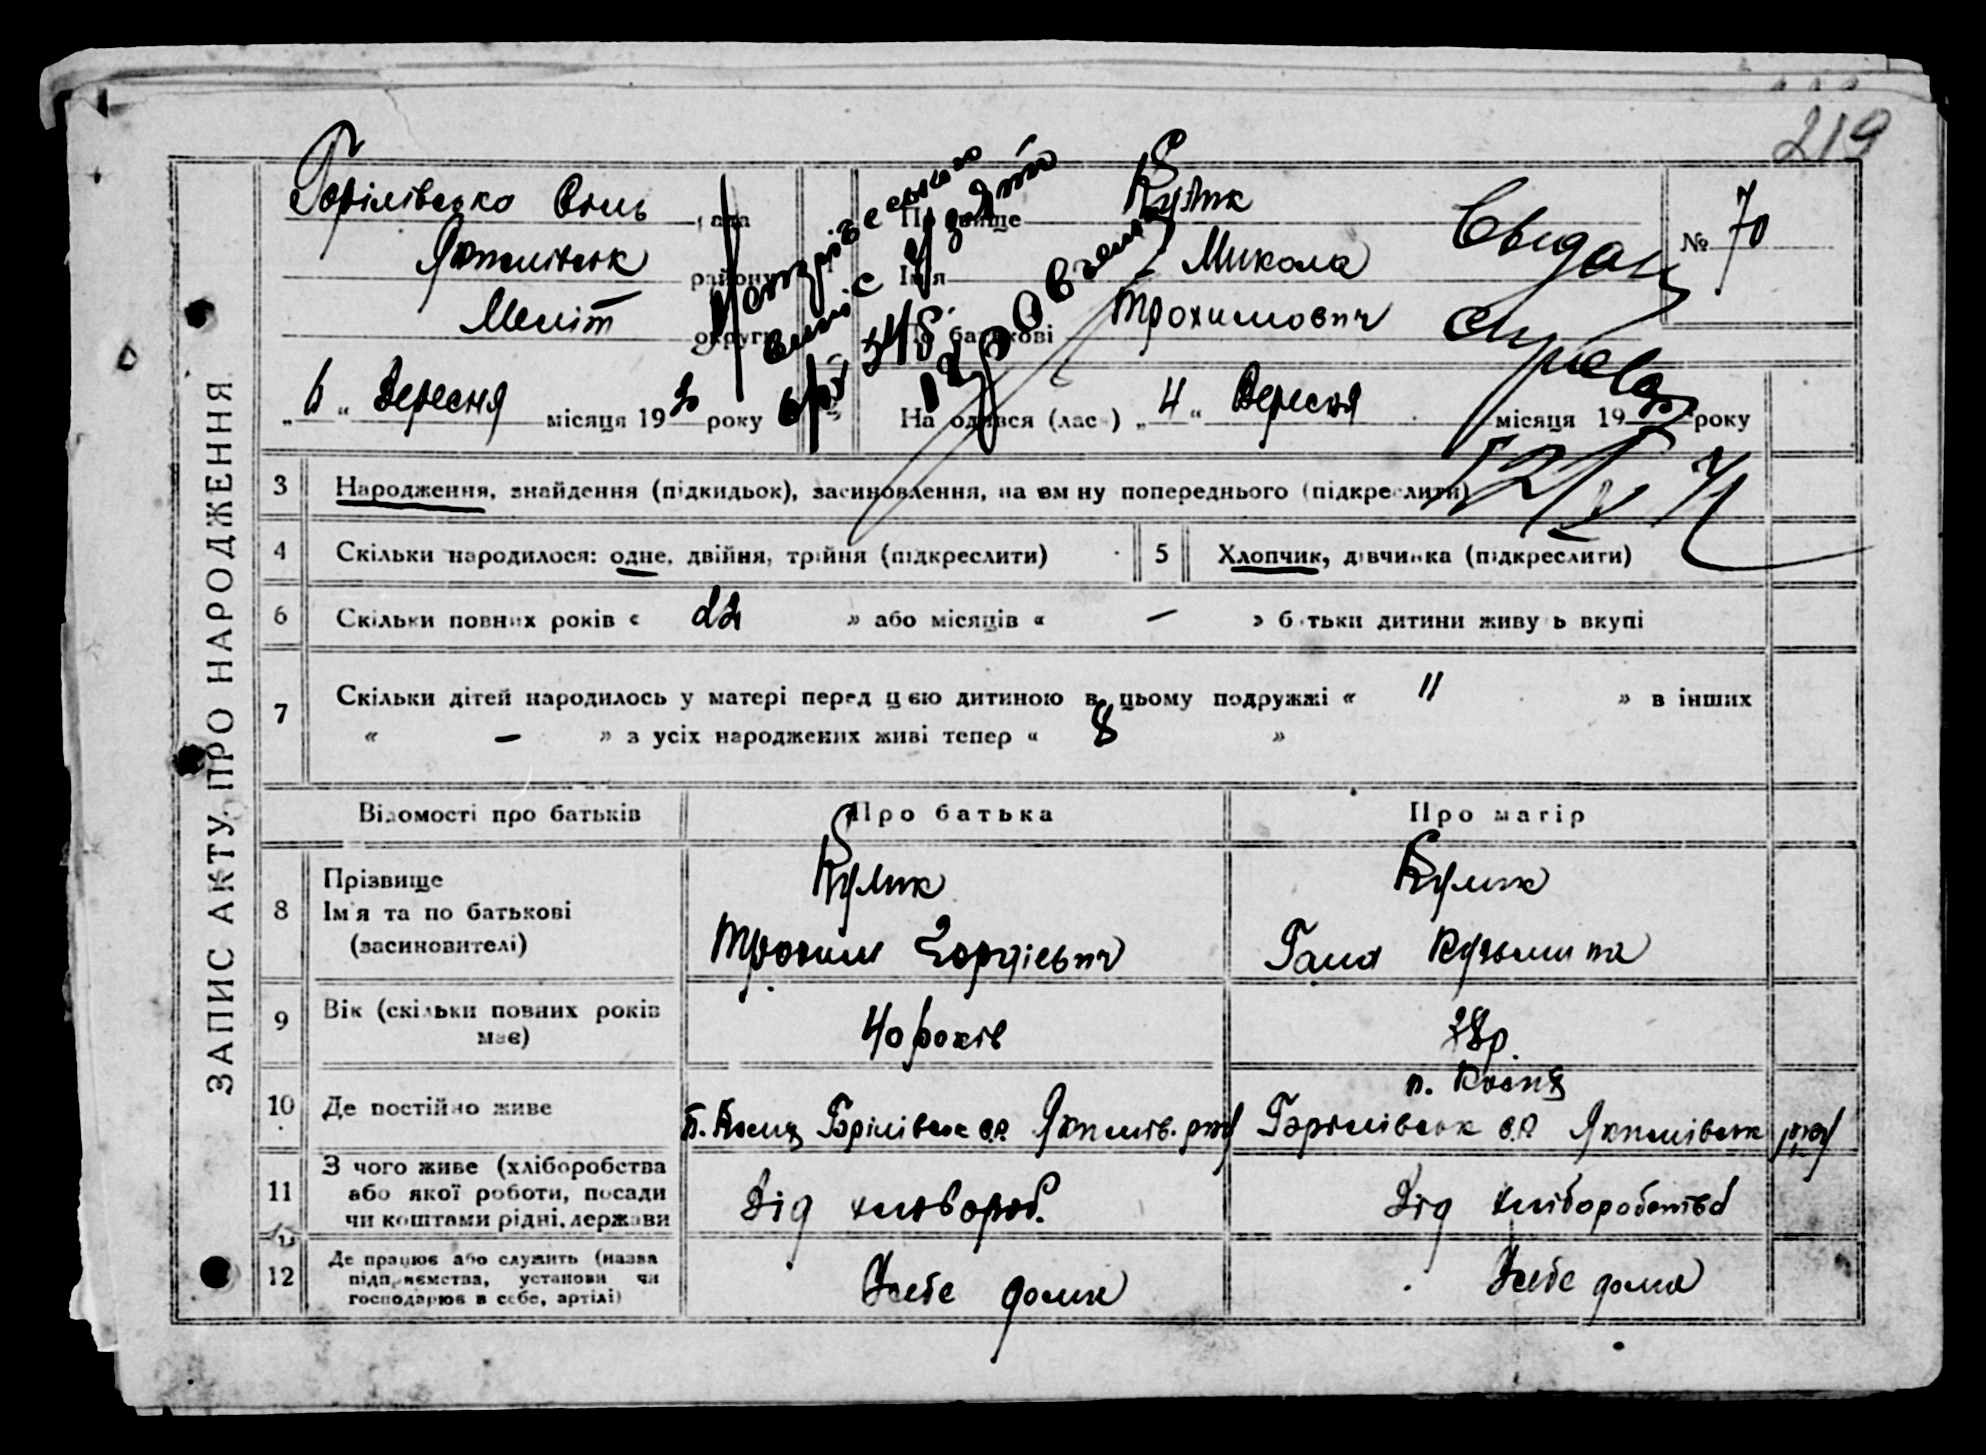 219
Горілівсько Сіль рада
Якимівськ району
Меліт округи
„6“ Вересня місяця 1930 року
Прізвище Кулик
Ім'я Микола
По батькові Трохимович
№ 70
Народився (лась) „4“ Вересня місяця 1930 року
ЗАПИС АКТУ ПРО НАРОДЖЕННЯ
3 Народження, знайдення (підкидьок), засиновлення, на зміну попереднього (підкреслити)
4 Скільки народилося: одне, двійня, трійня (підкреслити)
5 Хлопчик, дівчинка (підкреслити)
6 Скільки повних років « 22 » або місяців « — » батьки дитини живуть вкупі
7 Скільки дітей народилось у матері перед цією дитиною в цьому подружжі « 11 » в інших
« — » з усіх народжених живі тепер « 8 »
Відомості про батьків Про батька Про матір
8 Прізвище Кулик Кулик
Ім'я та по батькові
(засиновителі) Трохим Гордієвич Гана Кузьмина
9 Вік (скільки повних років
має) 40 років 38 р.
10 Де постійно живе п. Косиц Горілівськ с.р. Якимів. рай
п. Косиц
Горілівськ с.р. Якимівськ рай
11 З чого живе (хліборобства
або якої роботи, посади
чи коштами рідні, держави Від хлібороб. Від хліборобства
12 Де працює або служить (назва
підприємства, установи чи
господарює в себе, артілі) У себе дома У себе дома